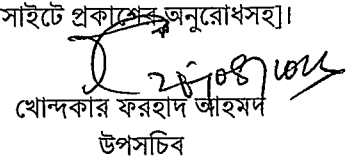 সাইটে প্রকাশের অনুরোধসহ]।
খোন্দকার ফরহাদ আহমদ
উপসচিব